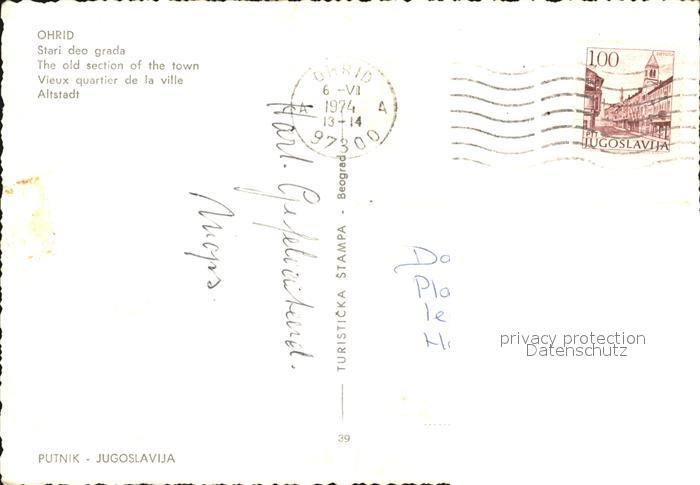 OHRID
Stari deo grada
The old section of the town
Vieux quartier de la ville
Altstadt
OHRID
6 -VII
A 1974 A
13-14
97300
1.00
PTT
JUGOSLAVIJA
Hart. Gefeliciteerd.
TURISTIČKA ŠTAMPA - Beograd
Do
Pla
Ie
H
privacy protection
Datenschutz
39
PUTNIK - JUGOSLAVIJA